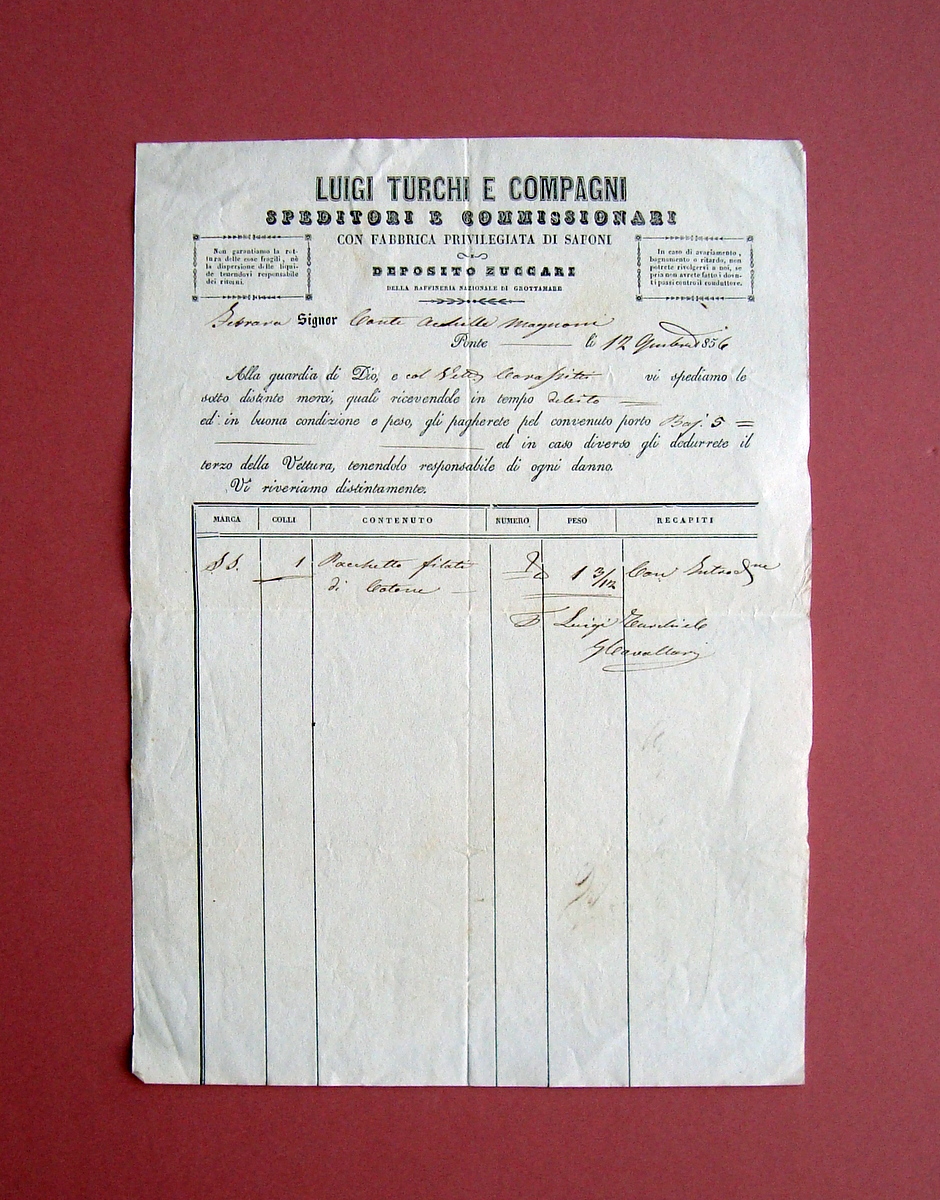 LUIGI TURCHI E COMPAGNI
SPEDITORI E COMMISSIONARI
CON FABBRICA PRIVILEGIATA DI SAPONI
DEPOSITO ZUCCARI
DELLA RAFFINERIA NAZIONALE DI GROTTAMARE
Non garantiamo la rot-
tura delle cose fragili, nè
la dispersione delle liqui-
de tenendovi responsabile
dei ritorni.
In caso di avariamento,
bagnamento o ritardo, non
potrete rivolgervi a noi, se
pria non avrete fatto i dovu-
ti passi contro il conduttore.
Signor Conte Achille Magnoni
Ponte li 12 9mbre 1856
Alla guardia di Dio, e col vi spediamo le
sotto distinte merci, quali ricevendole in tempo debito
ed in buona condizione e peso, gli pagherete pel convenuto porto Baj. 5 =
ed in caso diverso gli dedurrete il
terzo della Vettura, tenendolo responsabile di ogni danno.
Vi riveriamo distintamente.
MARCA COLLI CONTENUTO NUMERO PESO RECAPITI
S S. 1 Pacchetto filato 1 3/12 Con
di Cotone
Luigi Turchi e C
GCavallari